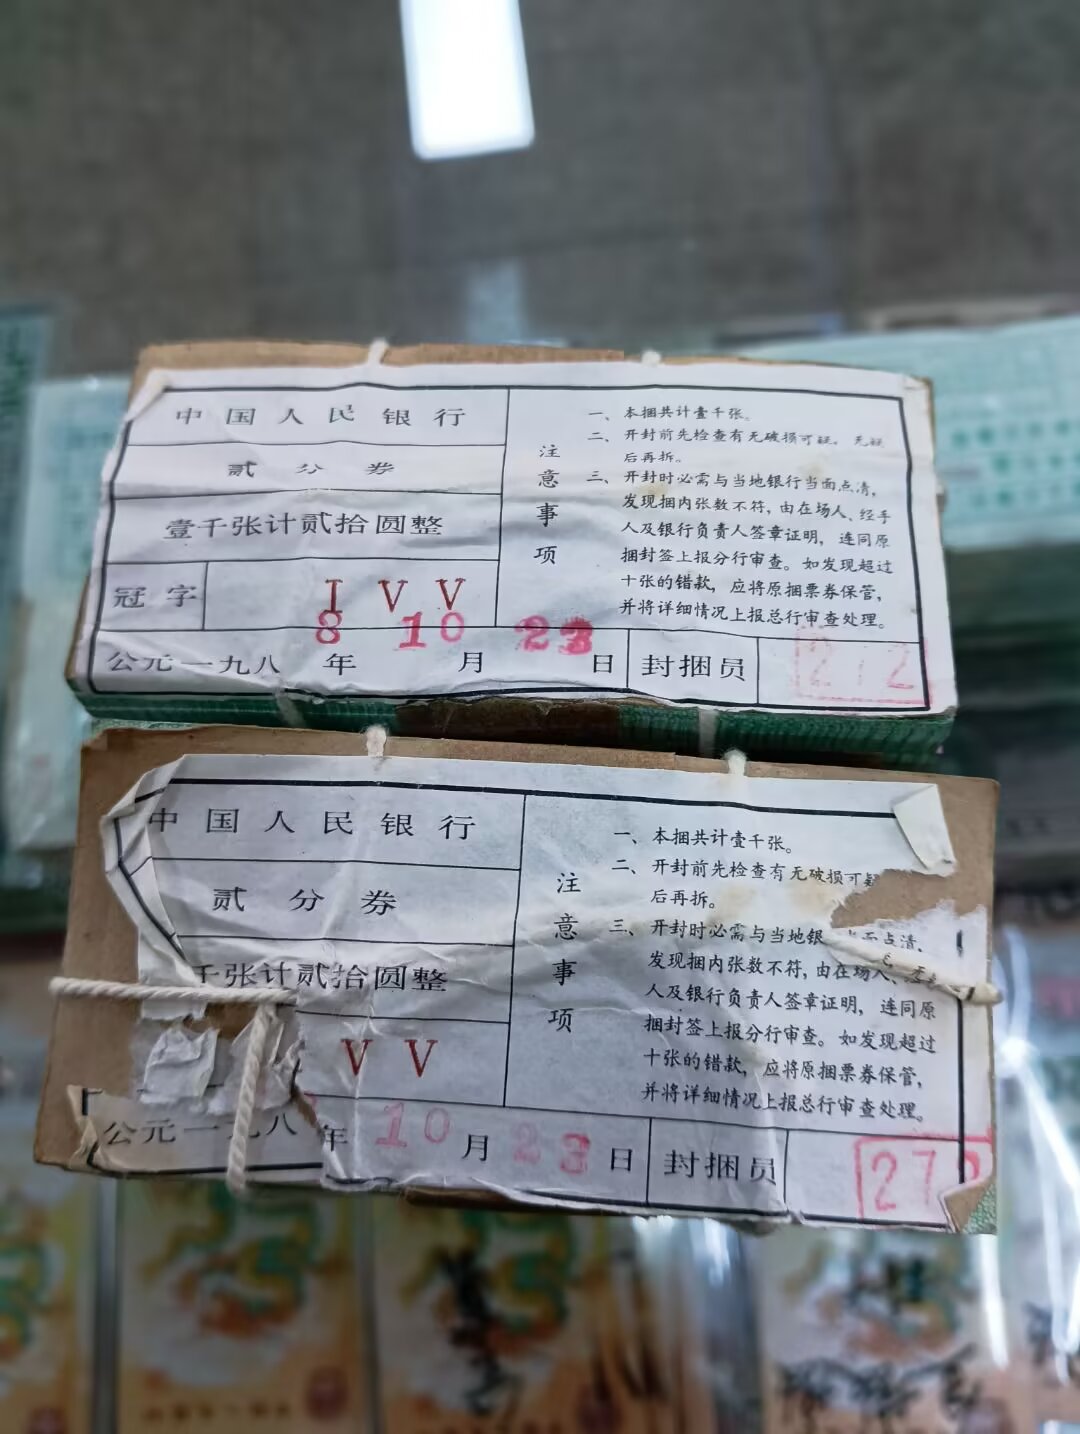 中国人民银行
贰分券
壹千张计贰拾圆整
冠字 I V V
公元一九八8年10月23日
封捆员 272
注意事项
一、本捆共计壹千张。
二、开封前先检查有无破损可疑，无疑
后再拆。
三、开封时必需与当地银行当面点清，
发现捆内张数不符，由在场人、经手
人及银行负责人签章证明，连同原
捆封签上报分行审查。如发现超过
十张的错款，应将原捆票券保管，
并将详细情况上报总行审查处理。
中国人民银行
贰分券
千张计贰拾圆整
V V
公元一九八年10月23日
封捆员 27
注意事项
一、本捆共计壹千张。
二、开封前先检查有无破损可疑
后再拆。
三、开封时必需与当地银 面点清，
发现捆内张数不符，由在场人、
人及银行负责人签章证明，连同原
捆封签上报分行审查。如发现超过
十张的错款，应将原捆票券保管，
并将详细情况上报总行审查处理。